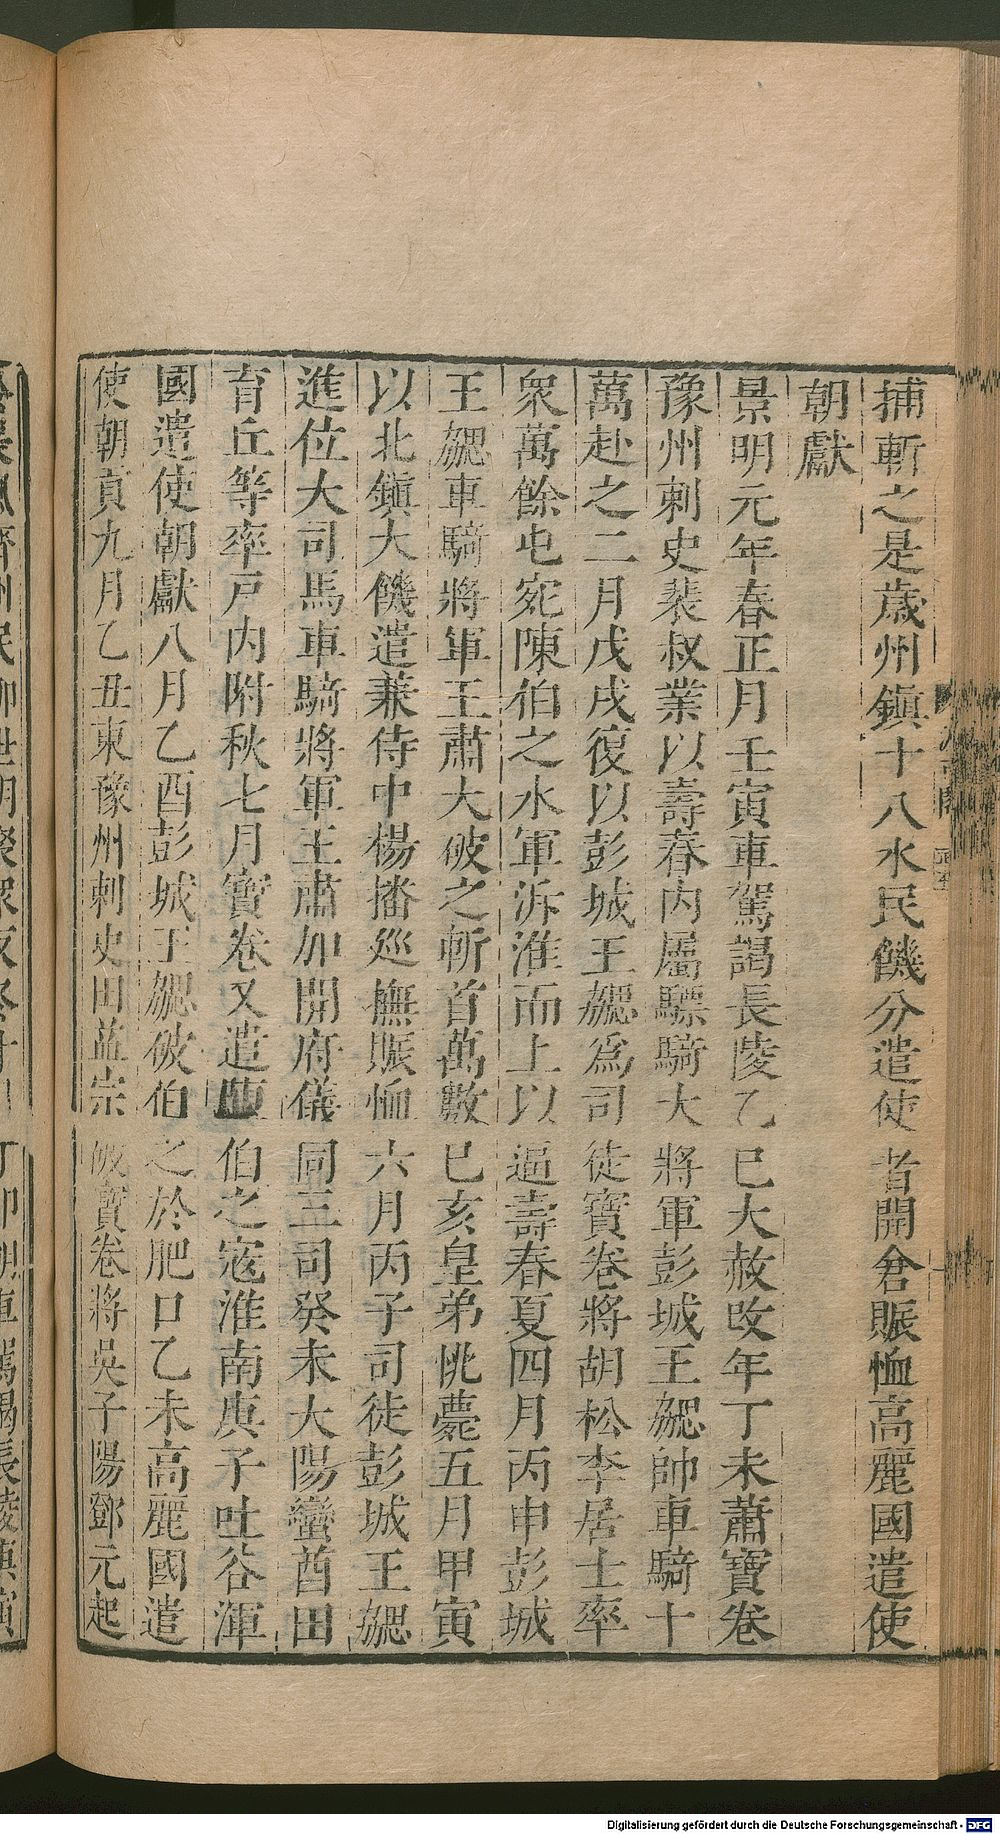 捕斬之是歲州鎮十八水民饑分遣使者開倉賑恤高麗國遣使
朝獻
景明元年春正月壬寅車駕謁長陵乙巳大赦改年丁未蕭寶卷
豫州刺史裴叔業以壽春內屬驃騎大將軍彭城王勰帥車騎十
萬赴之二月戊戌復以彭城王勰為司徒寶卷將胡松李居士率
衆萬餘屯宛陳伯之水軍泝淮而上以逼壽春夏四月丙申彭城
王勰車騎將軍王肅大破之斬首萬數巳亥皇弟恌薨五月甲寅
以北鎮大饑遣兼侍中楊播巡撫賑恤六月丙子司徒彭城王勰
進位大司馬車騎將軍王肅加開府儀同三司癸未大陽蠻酋田
育丘等率戶內附秋七月寶卷又遣陳伯之寇淮南庚子吐谷渾
國遣使朝獻八月乙酉彭城王勰破伯之於肥口乙未高麗國遣
使朝貢九月乙丑東豫州刺史田益宗破寶卷將吳子陽鄧元起
Digitalisierung gefördert durch die Deutsche Forschungsgemeinschaft - DFG